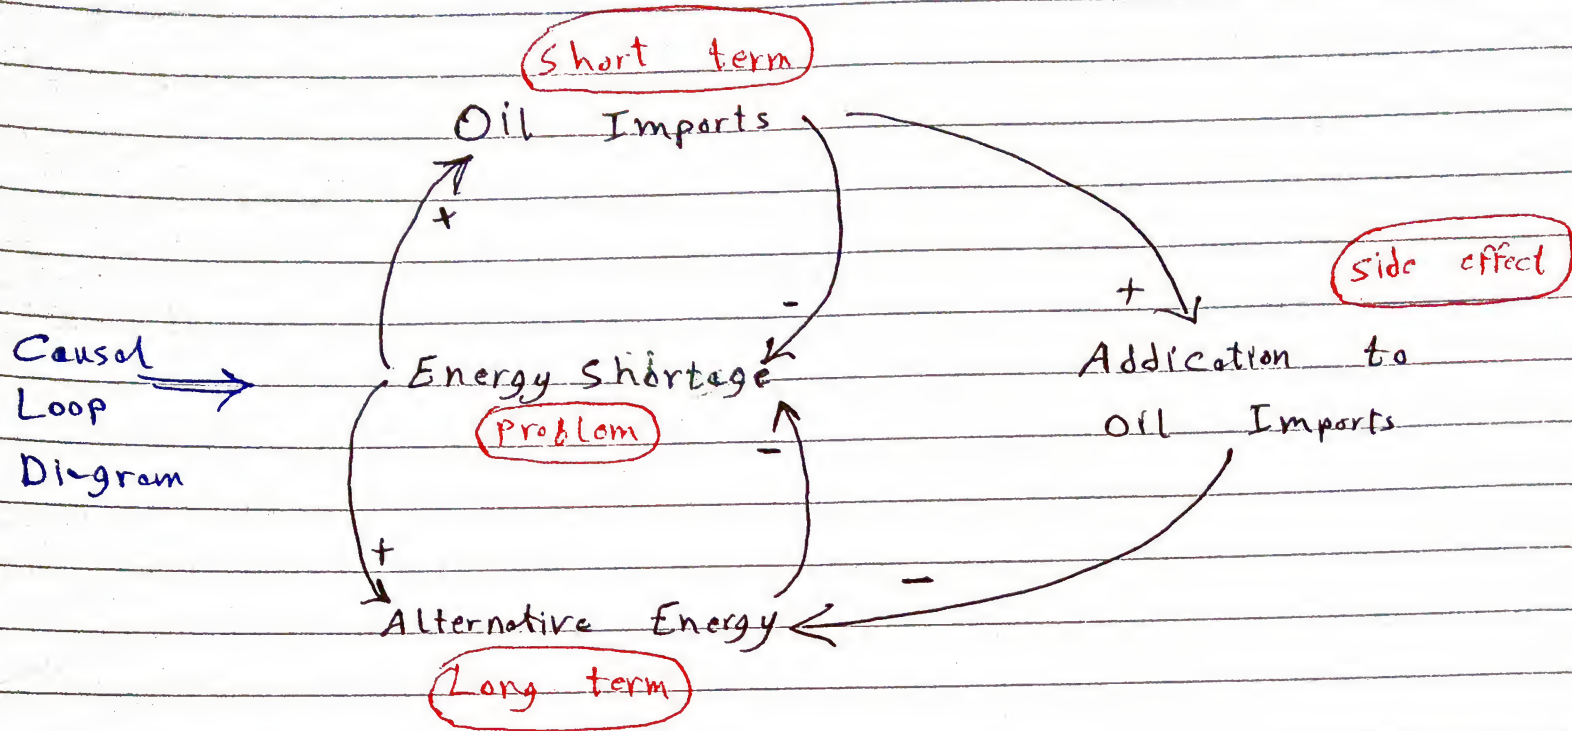 Short term
Oil Imports
+
-
+
side effect
Causal
Loop
Diagram
Energy Shortage
Problem
-
Addication to
Oil Imports
+
-
Alternative Energy
Long term